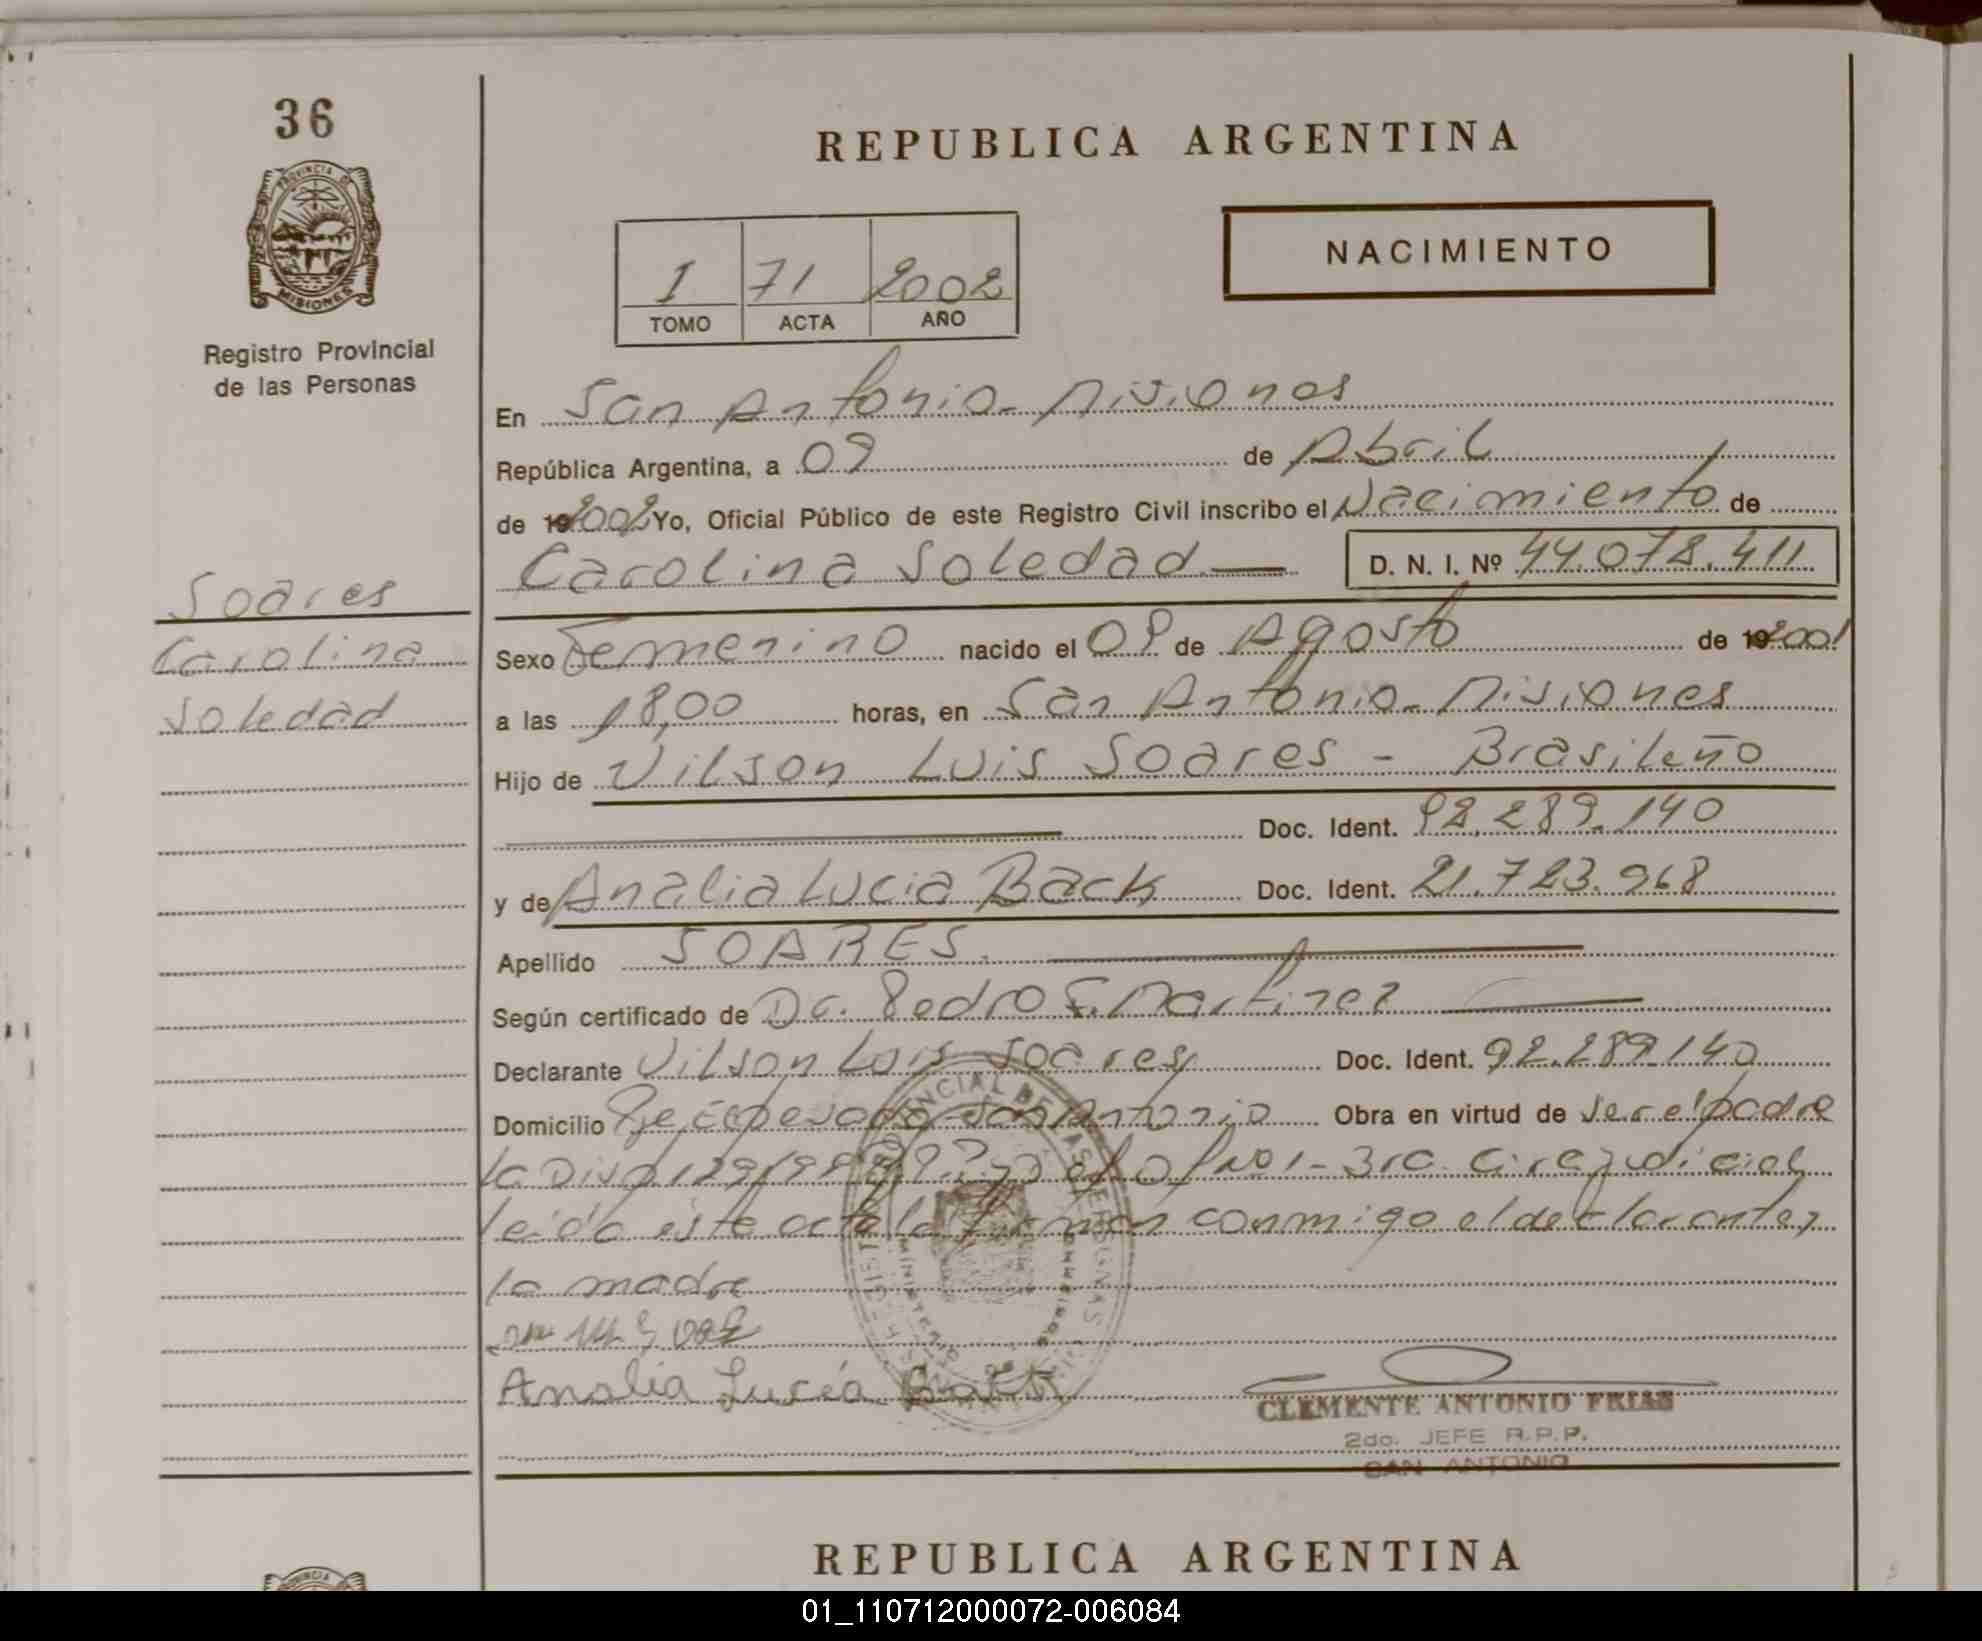 36
PROVINCIA DE
MISIONES
Registro Provincial
de las Personas
REPUBLICA ARGENTINA
I 71 2002
TOMO ACTA AÑO
NACIMIENTO
En San Antonio - Misiones
República Argentina, a 09 de Abril
de 2002 Yo, Oficial Público de este Registro Civil inscribo el Nacimiento de
Carolina Soledad D. N. I. Nº 44.078.411
Soares
Carolina
Soledad
Sexo Femenino nacido el 09 de Agosto de 2001
a las 18,00 horas, en San Antonio - Misiones
Hijo de Vilson Luis Soares - Brasileño
Doc. Ident. 92.289.140
y de Analia Lucia Back Doc. Ident. 21.723.968
Apellido SOARES.
Según certificado de Dr. Pedro S. Martinez
Declarante Vilson Luis Soares Doc. Ident. 92.289.140
Domicilio San Antonio Obra en virtud de ser el padre
la Disp 129/99 Nº 1 - 3ra. Circ. judicial
leida este acta la firman conmigo el declarante y
la madre
Analia Lucía Back
CLEMENTE ANTONIO FRIAS
2do. JEFE R.P.P.
SAN ANTONIO
REPUBLICA ARGENTINA
01_110712000072-006084